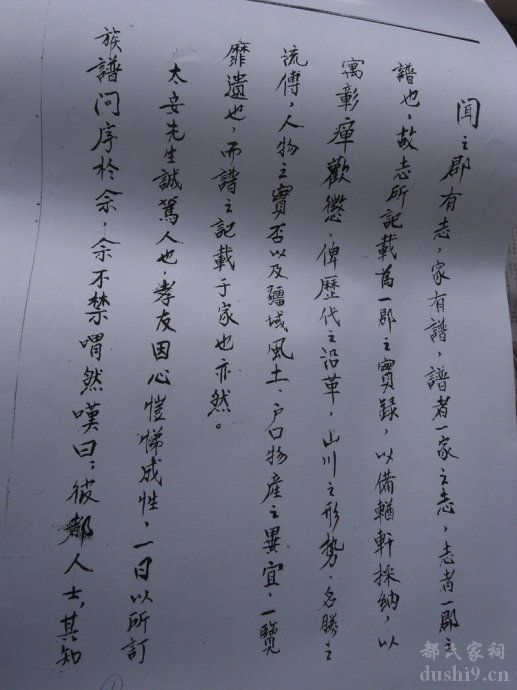 闻之郡有志，家有譜，譜者一家之志，志者一郡之
譜也，故志所記載為一郡之實録，以備輶軒採納，以
寓彰癉歡懲，俾歷代之沿革，山川之形势、名勝之
流傳，人物之實否以及疆域風土、户口物產之異宜，一覽
靡遺也，而譜之記載于家也亦然。
太安先生誠篤人也，孝友因心愷悌成性，一日以所訂
族譜问序於余，余不禁喟然嘆曰：彼鄰人士，其知
都氏家祠
dushi9.cn